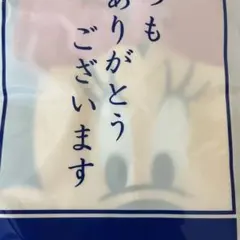 つも
ありがとう
ございます